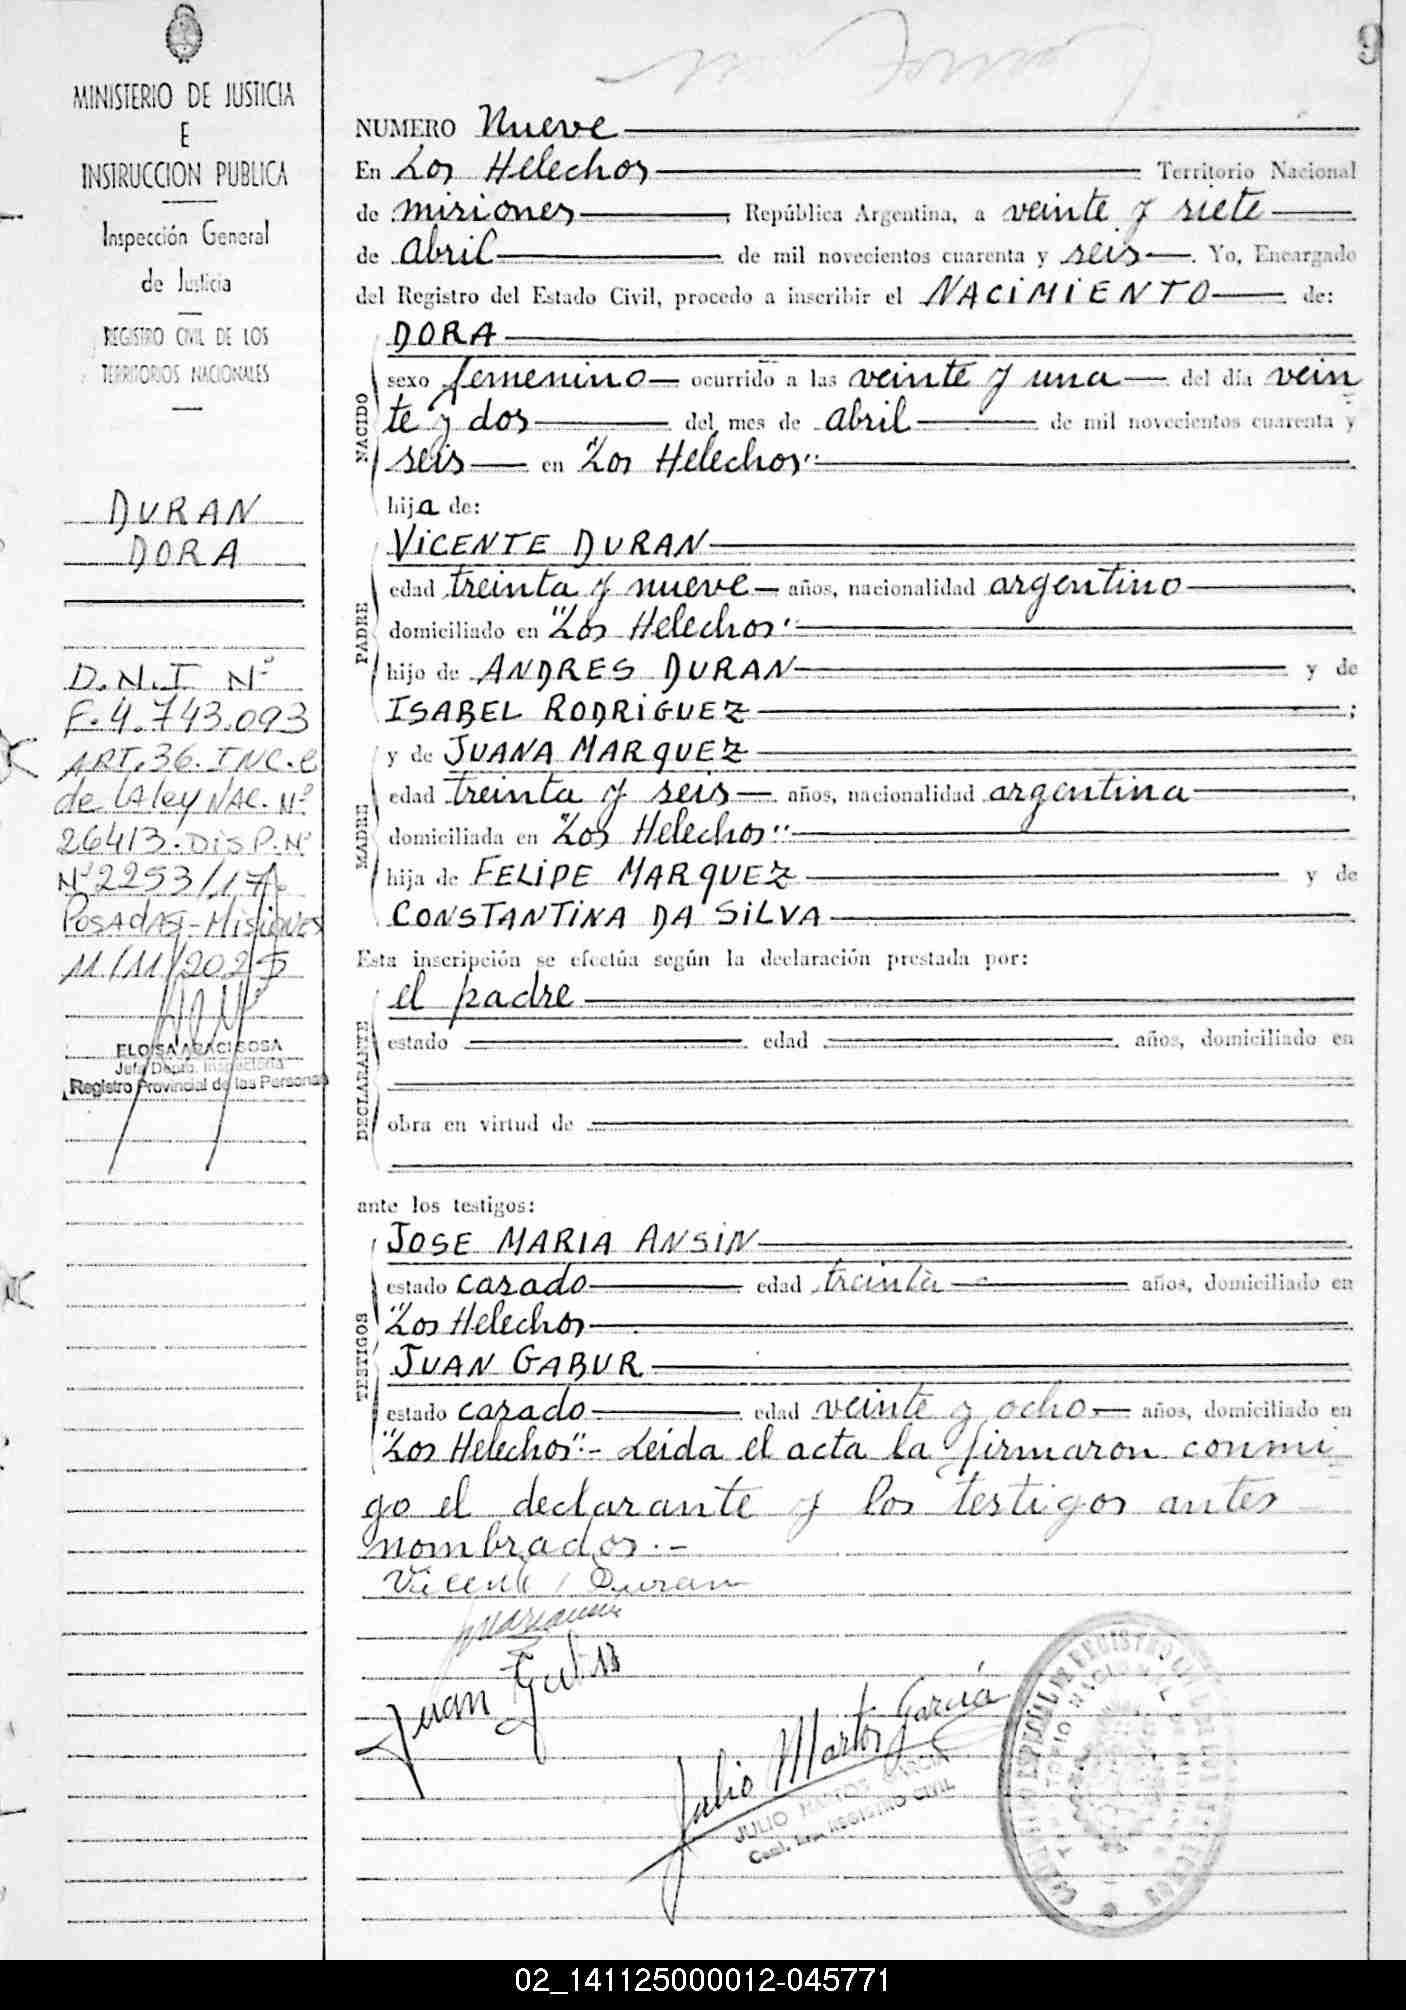 9
MINISTERIO DE JUSTICIA
E
INSTRUCCION PUBLICA
Inspección General
de Justicia
REGISTRO CIVIL DE LOS
TERRITORIOS NACIONALES
DURAN
DORA
D.N.I Nº
F.4.743.093
ART.36.INC.C
de LA ley NAC. Nº
26413.DISP.Nº
Nº2253/17
POSADAS-MISIONES
11/11/2025
ELOISA ARACI SOSA
Jefa Depto. Inspectoria
Registro Provincial de las Personas
NUMERO Nueve
En Los Helechos Territorio Nacional
de misiones, República Argentina, a veinte y siete
de abril de mil novecientos cuarenta y seis. Yo, Encargado
del Registro del Estado Civil, procedo a inscribir el NACIMIENTO de:
NACIDO
DORA
sexo femenino ocurrido a las veinte y una del día vein
te y dos del mes de abril de mil novecientos cuarenta y
seis en "Los Helechos"
hija de:
PADRE
VICENTE DURAN
edad treinta y nueve años, nacionalidad argentino.
domiciliado en "Los Helechos"
hijo de ANDRES DURAN y de
ISABEL RODRIGUEZ;
MADRE
y de JUANA MARQUEZ
edad treinta y seis años, nacionalidad argentina.
domiciliada en "Los Helechos"
hija de FELIPE MARQUEZ y de
CONSTANTINA DA SILVA
Esta inscripción se efectúa según la declaración prestada por:
DECLARANTE
el padre
estado edad años, domiciliado en
obra en virtud de
ante los testigos:
TESTIGOS
JOSE MARIA ANSIN
estado casado edad treinta años, domiciliado en
"Los Helechos
JUAN GABUR
estado casado edad veinte y ocho años, domiciliado en
"Los Helechos".- Leida el acta la firmaron conmi
go el declarante y los testigos antes
nombrados.-
Vicente Duran
Juan
Julio Martos García
JULIO MARTOS GARCIA
REGISTRO CIVIL
02_141125000012-045771